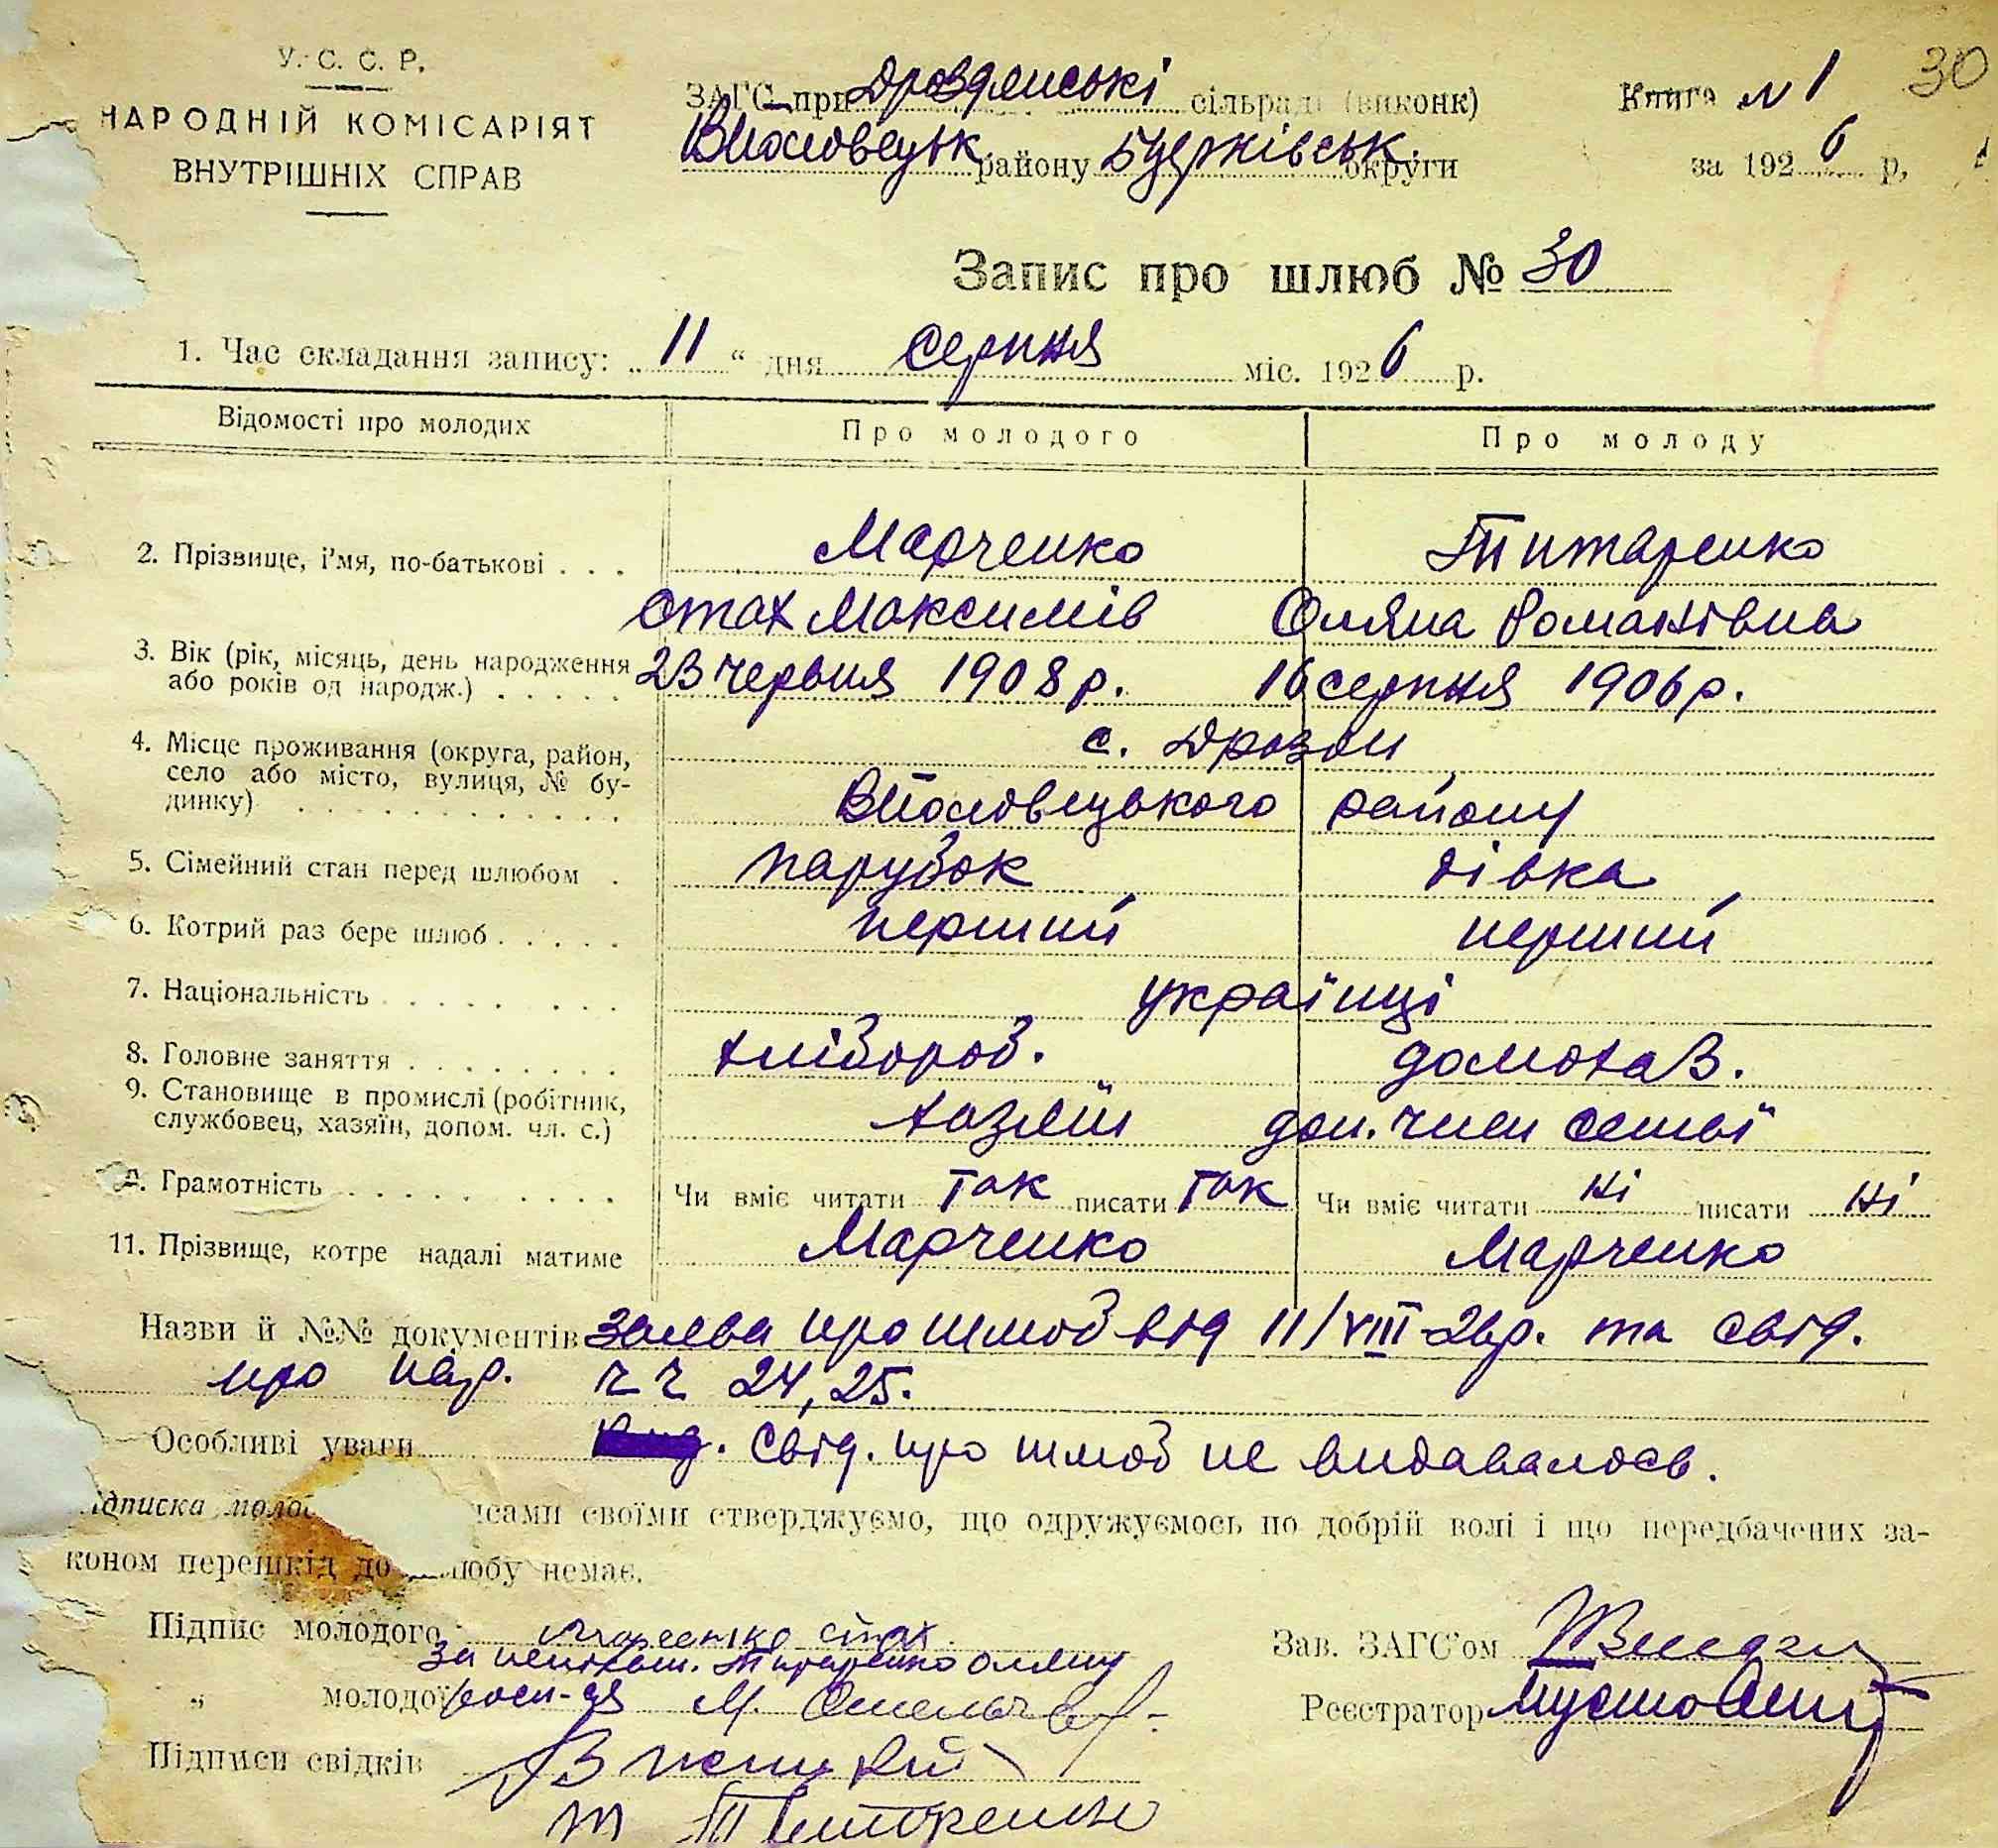 У. С. С. Р.
НАРОДНІЙ КОМІСАРІЯТ
ВНУТРІШНІХ СПРАВ
ЗАГС при Дрозденські сільраді (виконк)
ВПоловецьк. району Бцерківськ. округи
Книга № 1
30
за 1926 р,
Запис про шлюб № 30
1. Час складання запису: „ 11 “ дня серпня міс. 1926 р.
Відомості про молодих Про молодого Про молоду
2. Прізвище, і'мя, по-батькові . . . Марченко Титаренко
Стах Максимів Оляна Романівна
3. Вік (рік, місяць, день народження
або років од народж.) . . . . . 23 червня 1908 р. 16 серпня 1906 р.
4. Місце проживання (округа, район, с. Дрозди
село або місто, вулиця, № бу-
динку) . . . . . . . . . . . . ВПоловецького району
5. Сімейний стан перед шлюбом . парубок дівка
6. Котрий раз бере шлюб . . . . . перший перший
7. Національність . . . . . . . . українці
8. Головне заняття . . . . . . . . хлібороб. домохаз.
9. Становище в промислі (робітник,
службовец, хазяїн, допом. чл. с.) хазяїн доп. член семьї
Грамотність . . . . . . . . . . Чи вміє читати так писати так Чи вміє читати ні писати ні
11. Прізвище, котре надалі матиме Марченко Марченко
Назви й №№ документів заява про шлюб від 11/VIII-26р. та свід.
про нар. ч ч 24, 25.
Особливі уваги свід. про шлюб не видавалось.
ідписка молод исами своїми стверджуємо, що одружуємось по добрій волі і що передбачених за-
коном перешкід до любу немає.
Підпис молодого Марченко Стах
за неписьм. Титаренко Оляну
„ молодої роспи-ся М. Омельч
Зав. ЗАГС'ом
Реєстратор
Підписи свідків
Т Титаренко